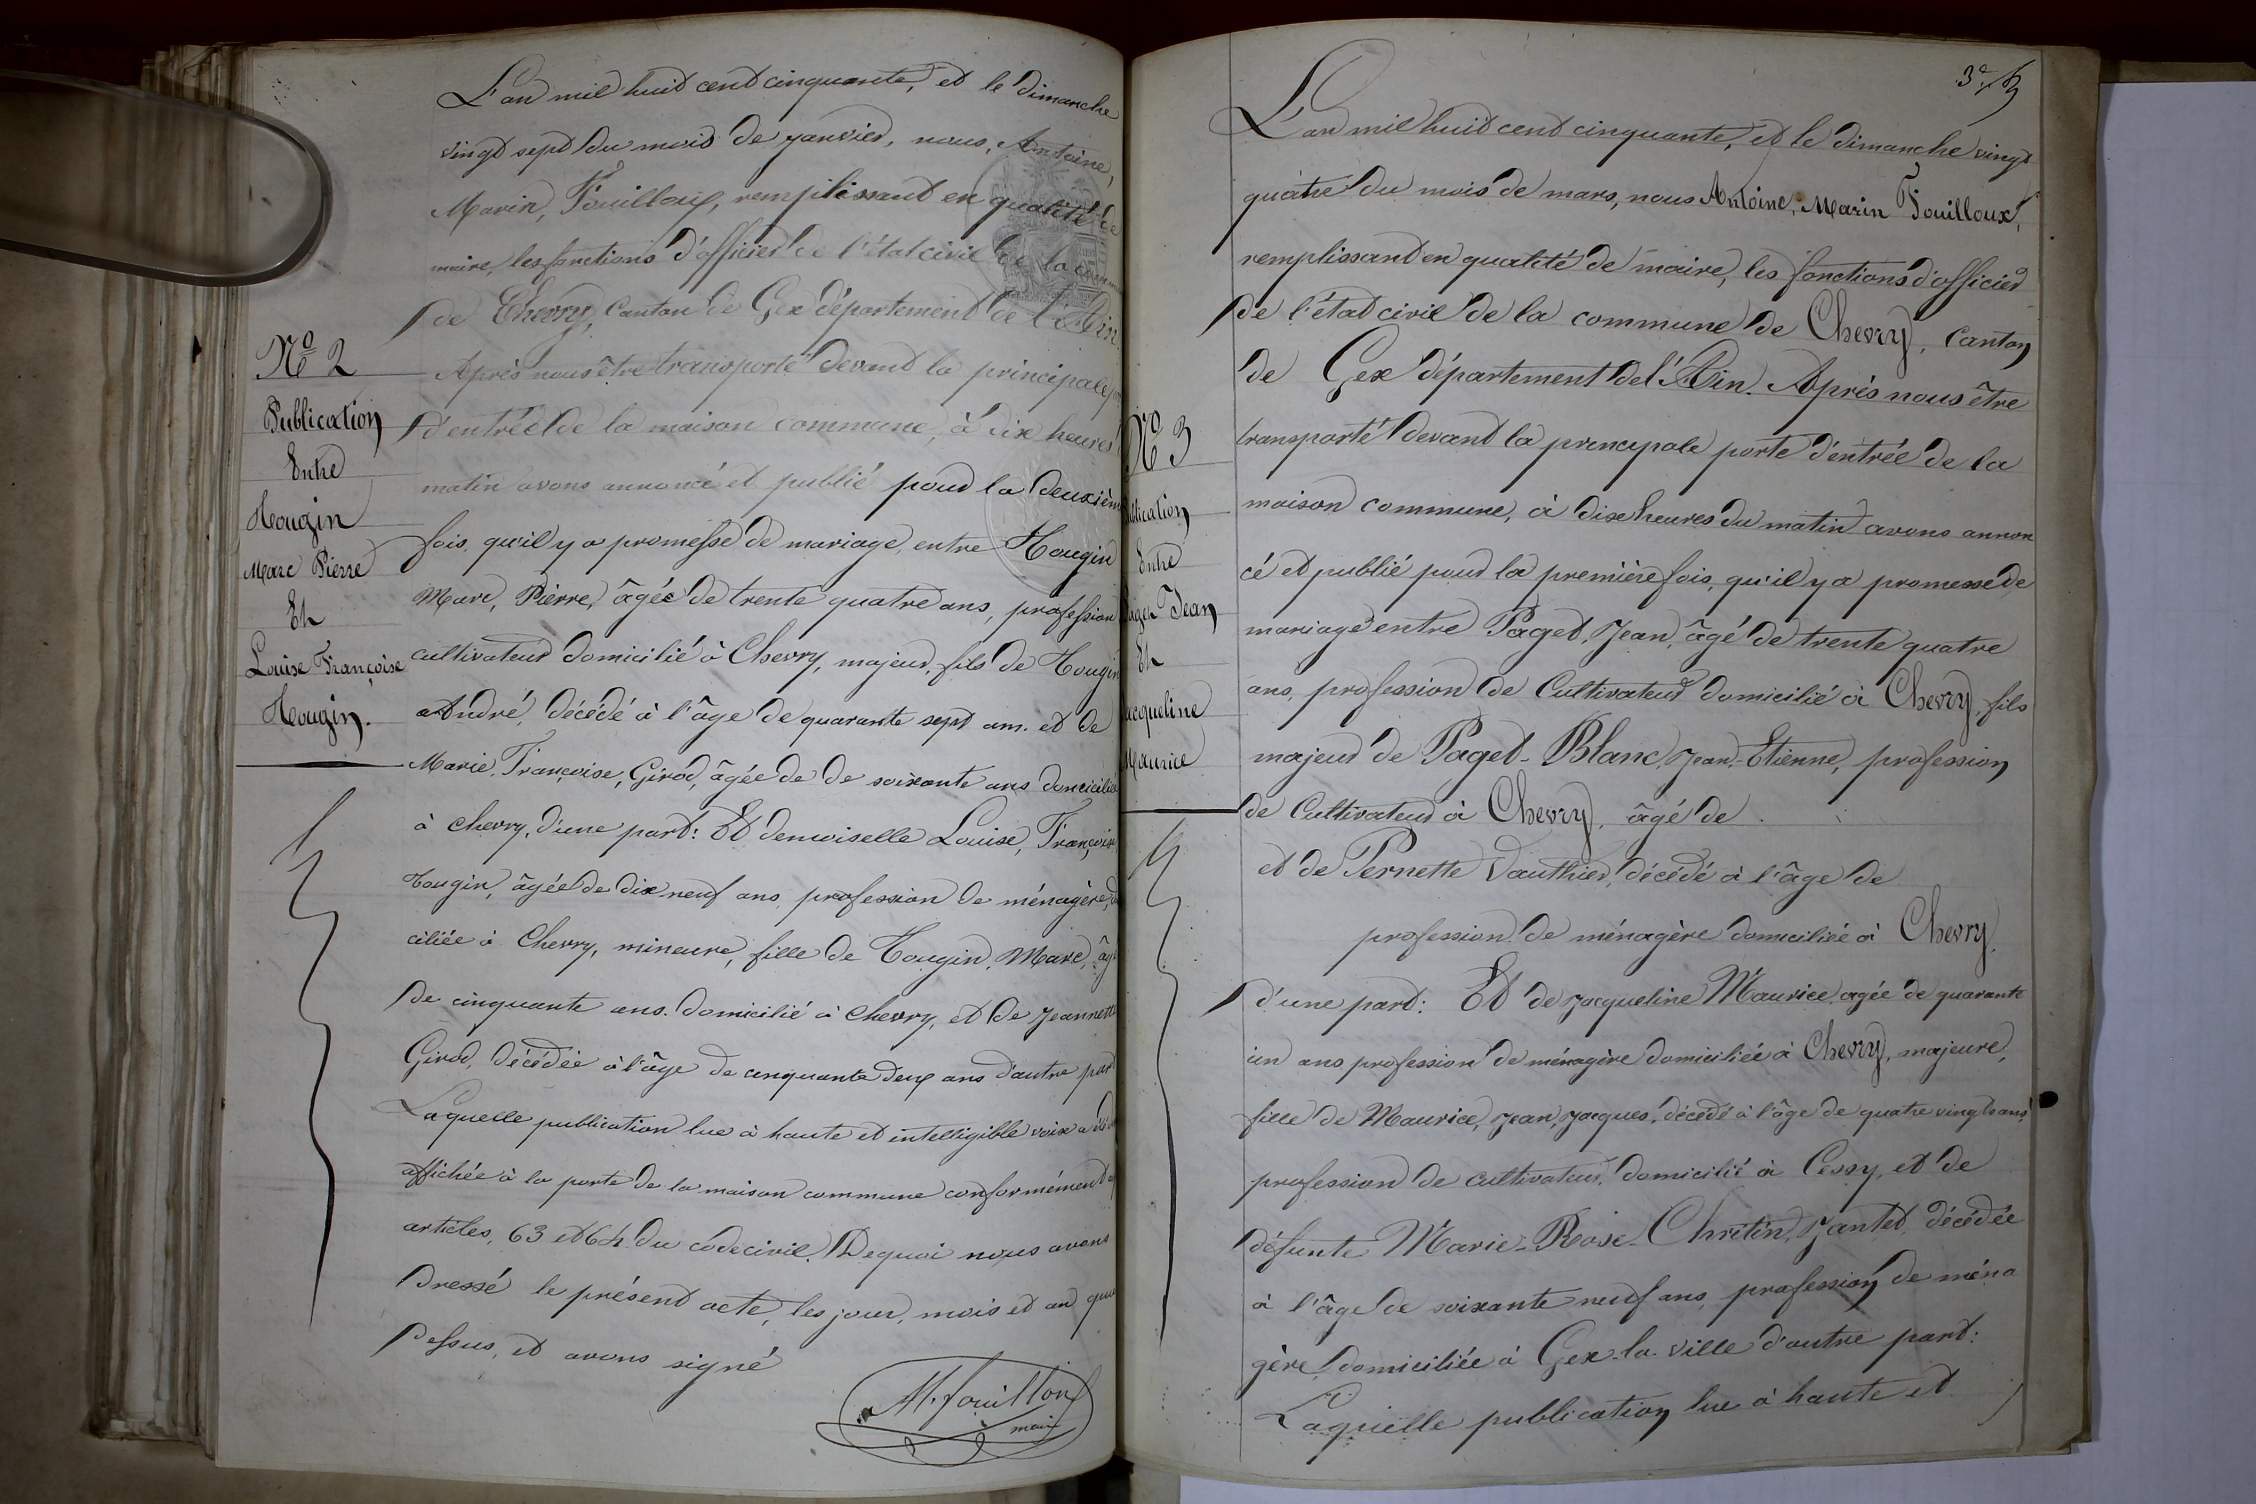 L'an mil huit cent cinquante, et le dimanche
vingt sept du mois de janvier, nous, Antoine,
Marin, Fouilloux, remplissant en qualité de
maire, les fonctions d'officier de l'état civil de la com
de Chevry, Canton de Gex département de l'Ain.
Après nous être transporté devant la principale
d'entrée de la maison commune, à dix heures
matin avons annoncé et publié pour la deuxièm
fois, qu'il y a promesse de mariage, entre Hougin
Marc, Pierre, âgée de trente quatre ans, profession
cultivateur domicilié à Chevry, majeur, fils de Tougin
André, décédé à l'âge de quarante sept ans. et de
Marie, Françoise, Girod, âgée de de soixante ans domiciliée
à Chevry, d'une part: Et demoiselle Louise, Françoise
Tougin, âgée de dix neuf ans, profession de ménagère,
ciliée à Chevry, mineure, fille de Tougin, Marc, âg
de cinquante ans. domicilié à Chevry, et de Jeannette
Girod, décédée à l'âge de cinquante deux ans d'autre part
Laquelle publication lue à haute et intelligible voix a été
affichée à la porte de la maison commune conformément
articles, 63 et 64 du code civil. De quoi nous avons
dressé le présent acte, les jour, mois et an que
dessus, et avons signé
M. fouilloux
maire
No 2
Publication
Entre
Hougin
Marc Pierre
Et
Louise Françoise
Hougin.
3e
L'an mil huit cent cinquante, et le dimanche vingt
quatre du mois de mars, nous Antoine, Marin Fouilloux,
remplissant en qualité de maire, les fonctions d'officier
de l'état civil de la commune de Chevry, Canton
de Gex département de l'Ain. Après nous être
transporté devant la principale porte d'entrée de la
maison commune, à dix heures du matin avons annon
cé et publié pour la première fois, qu'il y a promesse de
mariage entre Paget, Jean, âgé de trente quatre
ans, profession de Cultivateur domicilié à Chevry, fils
majeur de Paget-Blanc, Jean-Etienne, profession
de Cultivateur à Chevry, âgé de
et de Pernette Vauthier, décédé à l'âge de
profession de ménagère domiciliée à Chevry.
d'une part: Et de Jacqueline Maurice agée de quarante
un ans profession de ménagère domiciliée à Chevry, majeure,
fille de Maurice, Jean, Jacques, décédé à l'âge de quatre vingts ans,
profession de cultivateur, domicilié à Cessy, et de
défunte Marie-Rose-Chrétin, Jantet, décédée
à l'âge de soixante neuf ans, profession de ména
gère domiciliée à Gex-la-ville d'autre part:
Laquelle publication lue à haute et
No 3
blication
Entre
Paget Jean
Et
acqueline
Maurice